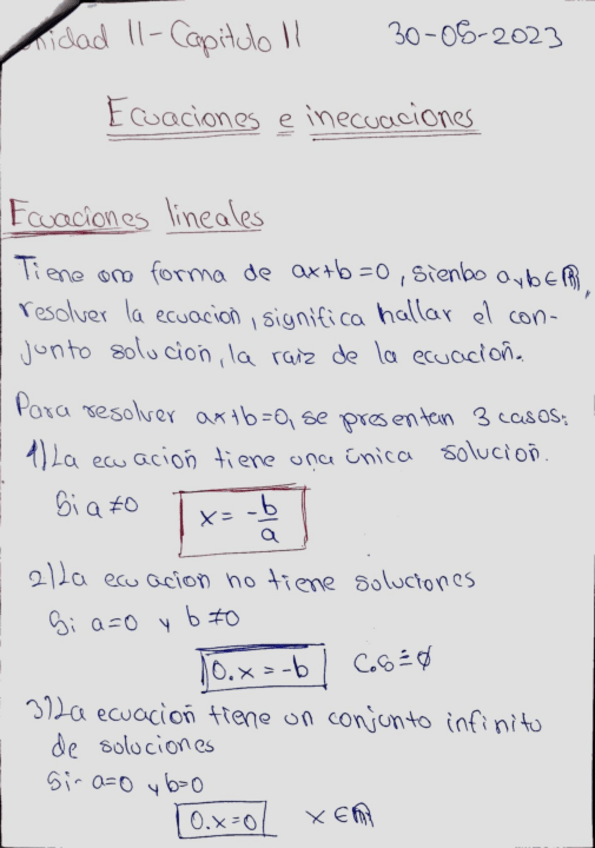 Unidad II - Capitulo II 30-05-2023
Ecuaciones e inecuaciones
Ecuaciones lineales
Tiene una forma de ax+b=0, siendo a y b ∈ ℝ,
resolver la ecuación, significa hallar el con-
junto solución, la raíz de la ecuación.
Para resolver ax+b=0, se presentan 3 casos:
1) La ecuación tiene una única solución.
Si a≠0 x = -b/a
2) La ecuación no tiene soluciones
Si a=0 y b≠0
0.x = -b C.S = ∅
3) La ecuación tiene un conjunto infinito
de soluciones
Si a=0 y b=0
0.x=0 x ∈ ℝ